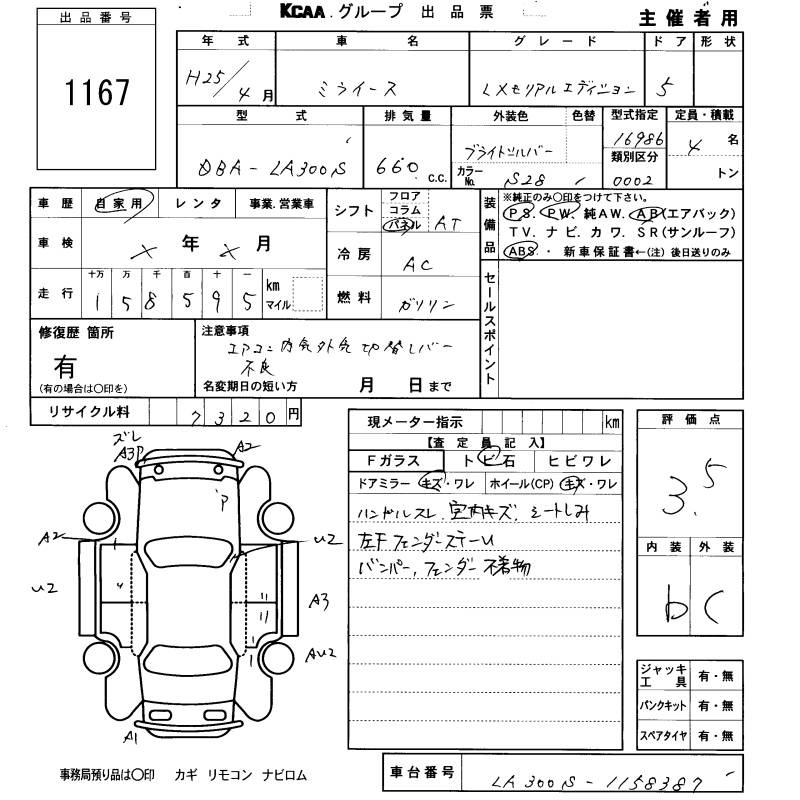 KCAA.グループ 出品票
主催者用
出品番号
1167
年式 車名 グレード ドア 形状
H25/4月 ミライース LXメモリアルエディション 5
型式 排気量 外装色 色替 型式指定 定員・積載
DBA-LA300S 660 c.c. ブライトシルバー 16986 4 名
カラーNo. S28 類別区分 0002 トン
車歴 自家用 レンタ 事業.営業車
車検 X 年 X 月
走行 十万 万 千 百 十 一 km マイル
158595
シフト フロア コラム パネル AT
冷房 AC
燃料 ガソリン
装備品 ※純正のみ〇印をつけて下さい。
PS. PW. 純AW. AB(エアバック)
TV. ナビ. カワ. SR(サンルーフ)
ABS. ・ 新車保証書←(注) 後日送りのみ
セールスポイント
修復歴 箇所
有
(有の場合は〇印を)
注意事項
エアコン内気外気切替レバー
不良
名変期日の短い方 月 日まで
リサイクル料 7320円
現メーター指示 km
【査定員記入】
Fガラス トビ石 ヒビワレ
ドアミラー キズ・ワレ ホイール(CP) キズ・ワレ
ハンドルスレ. 室内キズ. シートしみ
左FフェンダーステーU
バンパー, フェンダー 不着物
評価点
3.5
内装 外装
b C
ズレ
A3P
A2
P
A2
U2
U2
A3
AU2
A1
ジャッキ工具 有・無
パンクキット 有・無
スペアタイヤ 有・無
事務局預り品は〇印 カギ リモコン ナビロム
車台番号 LA300S-1158387